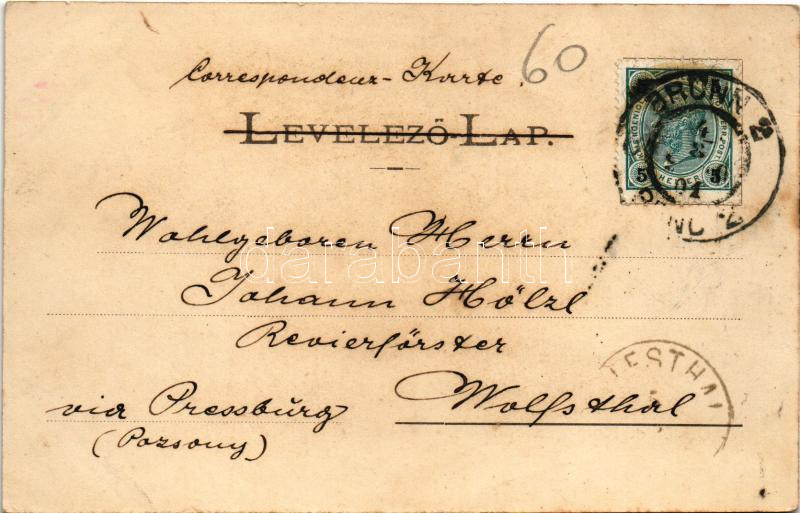 60
Correspondenz-Karte.
LEVELEZŐ-LAP.
BRÜNN
5 HELLER 5
Wohlgeboren Herrn
Johann Hölzl
Revierförster
via Pressburg Wolfsthal
(Pozsony)
darabanth